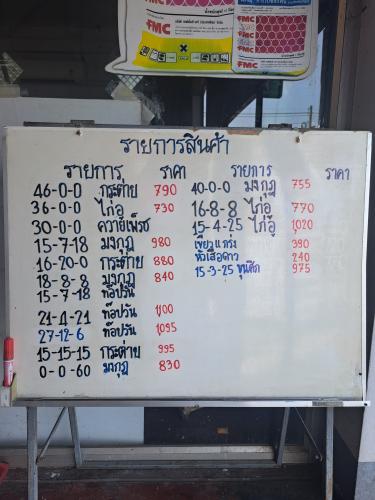 FMC
FMC
FMC
FMC
รายการสินค้า
รายการ ราคา รายการ ราคา
46-0-0 กระต่าย 790 40-0-0 มงกุฎ 755
36-0-0 ไก่อู 730 16-8-8 ไก่อู 770
30-0-0 ควายเพ็ชร 15-4-25 ไก่อู 1,020
15-7-18 มงกุฎ 980 เขียวแกร่ง 390
16-20-0 กระต่าย 880 หัวเสือดาว 240
18-8-8 มงกุฎ 840 15-3-25 ขุนศึก 975
15-7-18 ท๊อปวัน
21-4-21 ท๊อปวัน 1100
27-12-6 ท๊อปวัน 1095
15-15-15 กระต่าย 995
0-0-60 มงกุฎ 830